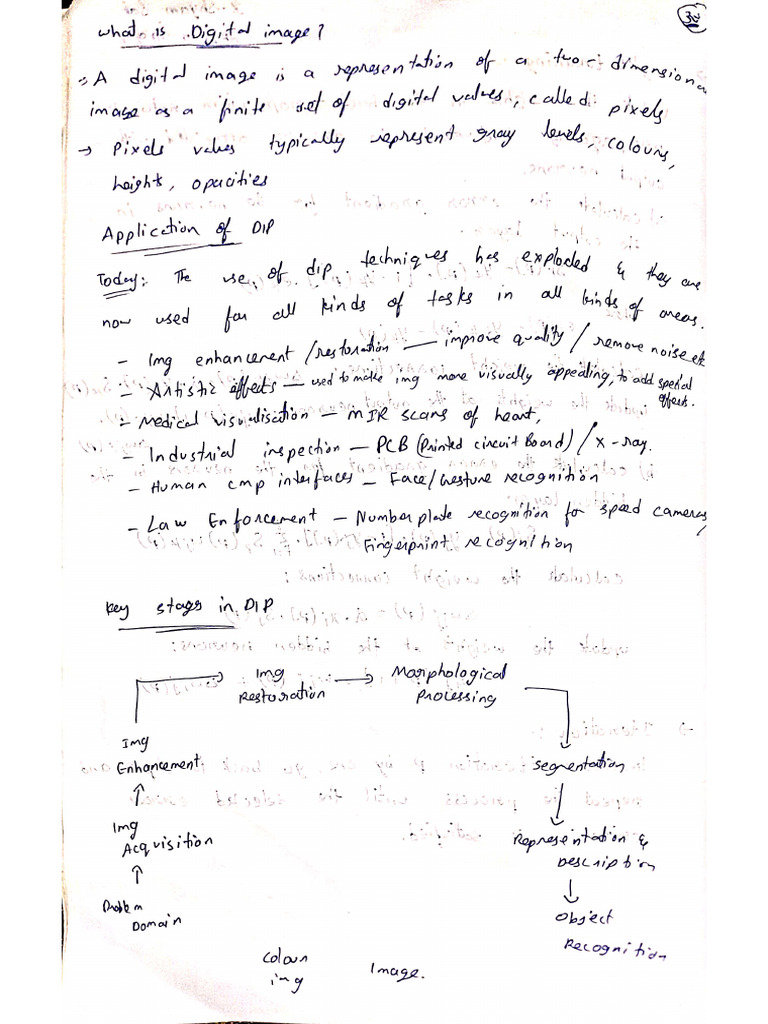 What is Digital image?
→ A digital image is a representation of a two-dimensional
image as a finite set of digital values, called: pixels
→ Pixels values typically represent gray levels, colours,
height, opacities
Application of DIP
Today: The use of dip techniques has exploded & they are
now used for all kinds of tasks in all kinds of areas.
- Img enhancement /restoration — improve quality / remove noise etc
- Artistic effects — used to make img more visually appealing, to add special
effects.
- Medical visualisation — MIR scans of heart,
- Industrial inspection — PCB (Printed circuit Board) / X-ray.
- Human cmp interfaces — Face/Gesture recognition
- Law Enforcement — Number plate recognition for speed cameras/
Fingerprint recognition
Key stages in DIP
Img → Morphological
Restoration Processing
Img
Enhancement Segmentation
Img
Acquisition Representation &
Description
Problem
Domain Object
Recognition
Colour Image.
img